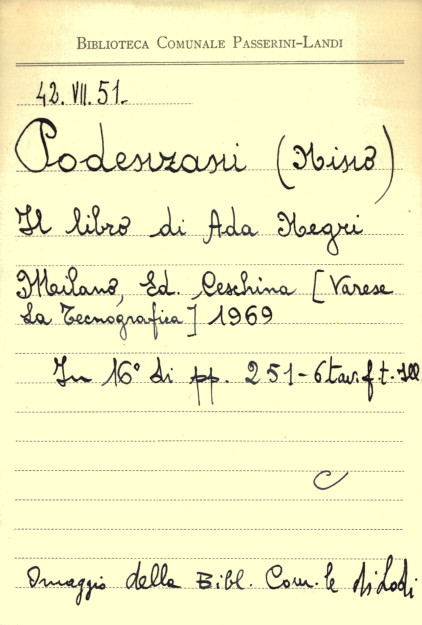 BIBLIOTECA COMUNALE PASSERINI-LANDI
42.VII.51.
Podenzani (Nino)
Il libro di Ada Negri
Milano, Ed. Ceschina [Varese
La Tecnografica] 1969
In 16° di pp. 251-6 tav. f.t. Ill
C
Omaggio della Bibl. Com.le di Lodi